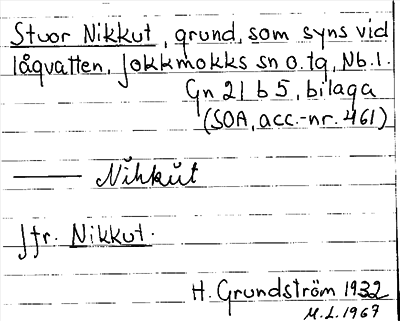 Stuor Nikkut, grund, som syns vid
lågvatten. Jokkmokks sn o. tg, Nb. l.
Gn 21 b 5, bilaga
(SOA, acc.-nr. 461)
— Nĭhkŭt
Jfr. Nikkut.
H. Grundström 1932
M.L. 1967